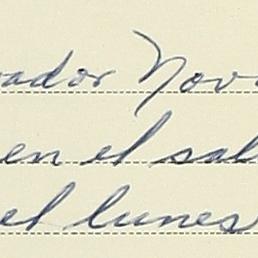 ador Nov
en el sal
el lunes